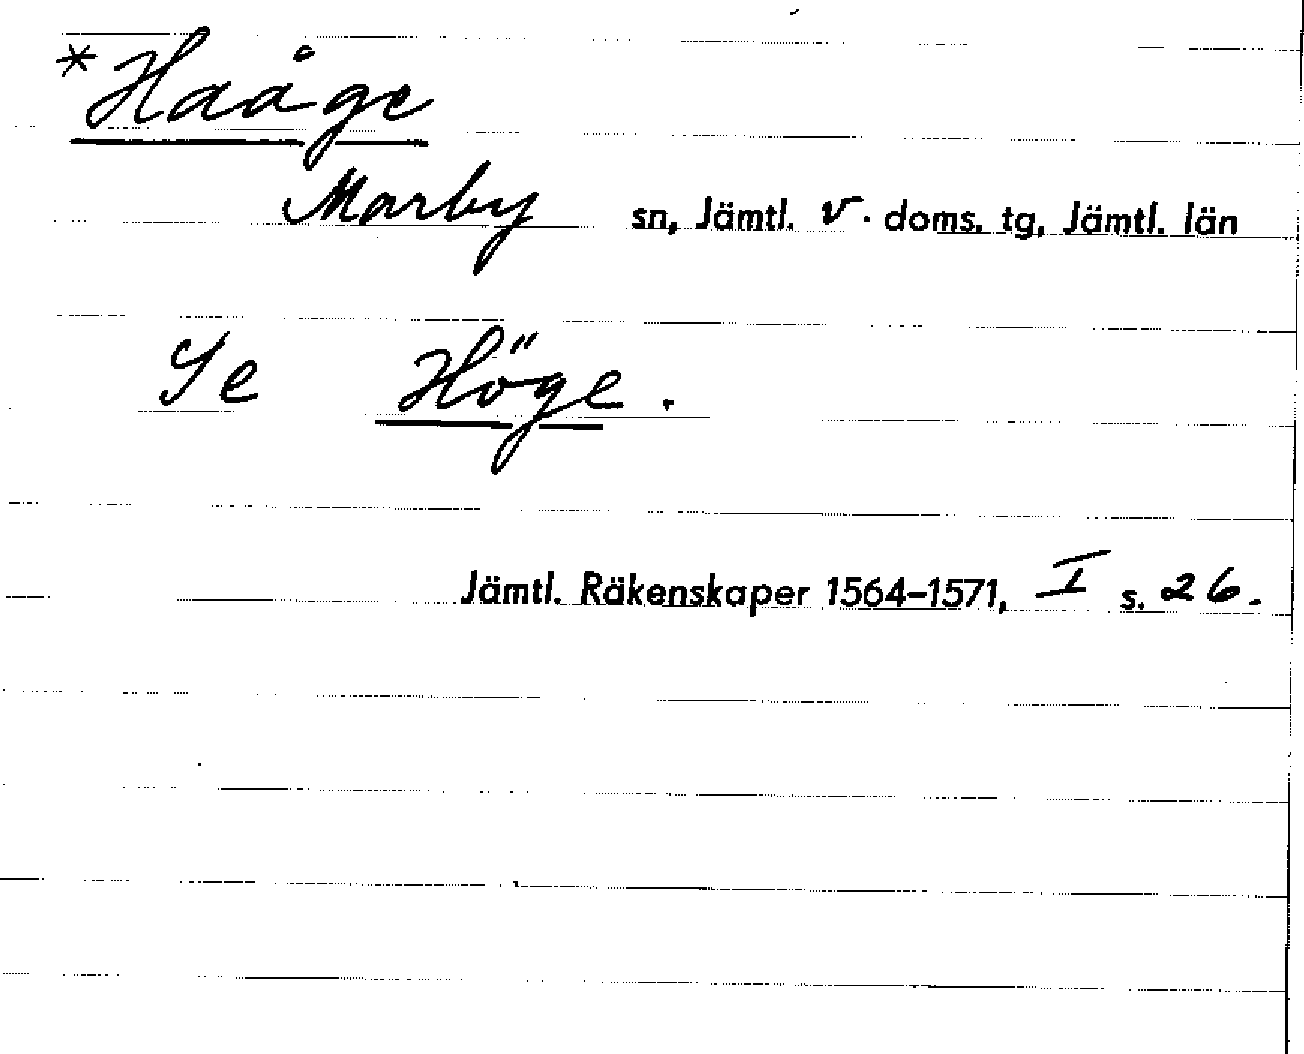 *Haåge
Marby sn, Jämtl. v. doms. tg, Jämtl. län
Se Höge.
Jämtl. Räkenskaper 1564–1571, I s. 26.